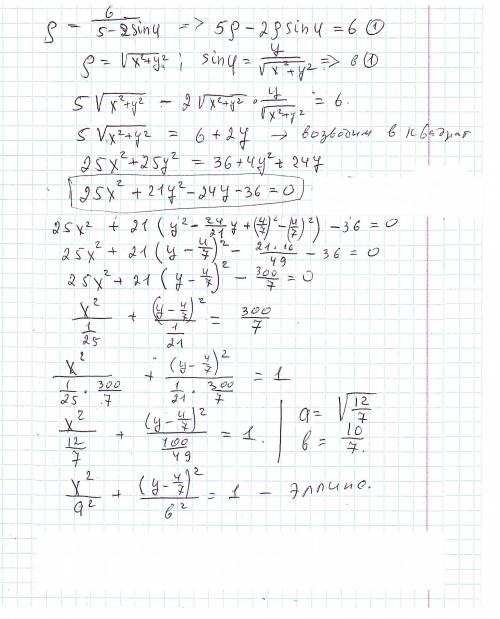 ρ = 6/(5-2sinφ) => 5ρ - 2ρsinφ = 6 ①
ρ = √(x²+y²) ; sinφ = y/√(x²+y²) => в ①
5√(x²+y²) - 2√(x²+y²) · y/√(x²+y²) = 6.
5√(x²+y²) = 6+2y → возводим в квадрат
25x²+25y² = 36+4y²+24y
25x² + 21y² - 24y - 36 = 0
25x² + 21(y² - 24/21 y + (4/7)² - (4/7)²) - 36 = 0
25x² + 21(y - 4/7)² - 21·16/49 - 36 = 0
25x² + 21(y - 4/7)² - 300/7 = 0
x²/(1/25) + (y - 4/7)²/(1/21) = 300/7
x²/(1/25 · 300/7) + (y - 4/7)²/(1/21 · 300/7) = 1
x²/(12/7) + (y - 4/7)²/(100/49) = 1. | a = √(12/7)
в = 10/7.
x²/a² + (y - 4/7)²/в² = 1 - эллипс.